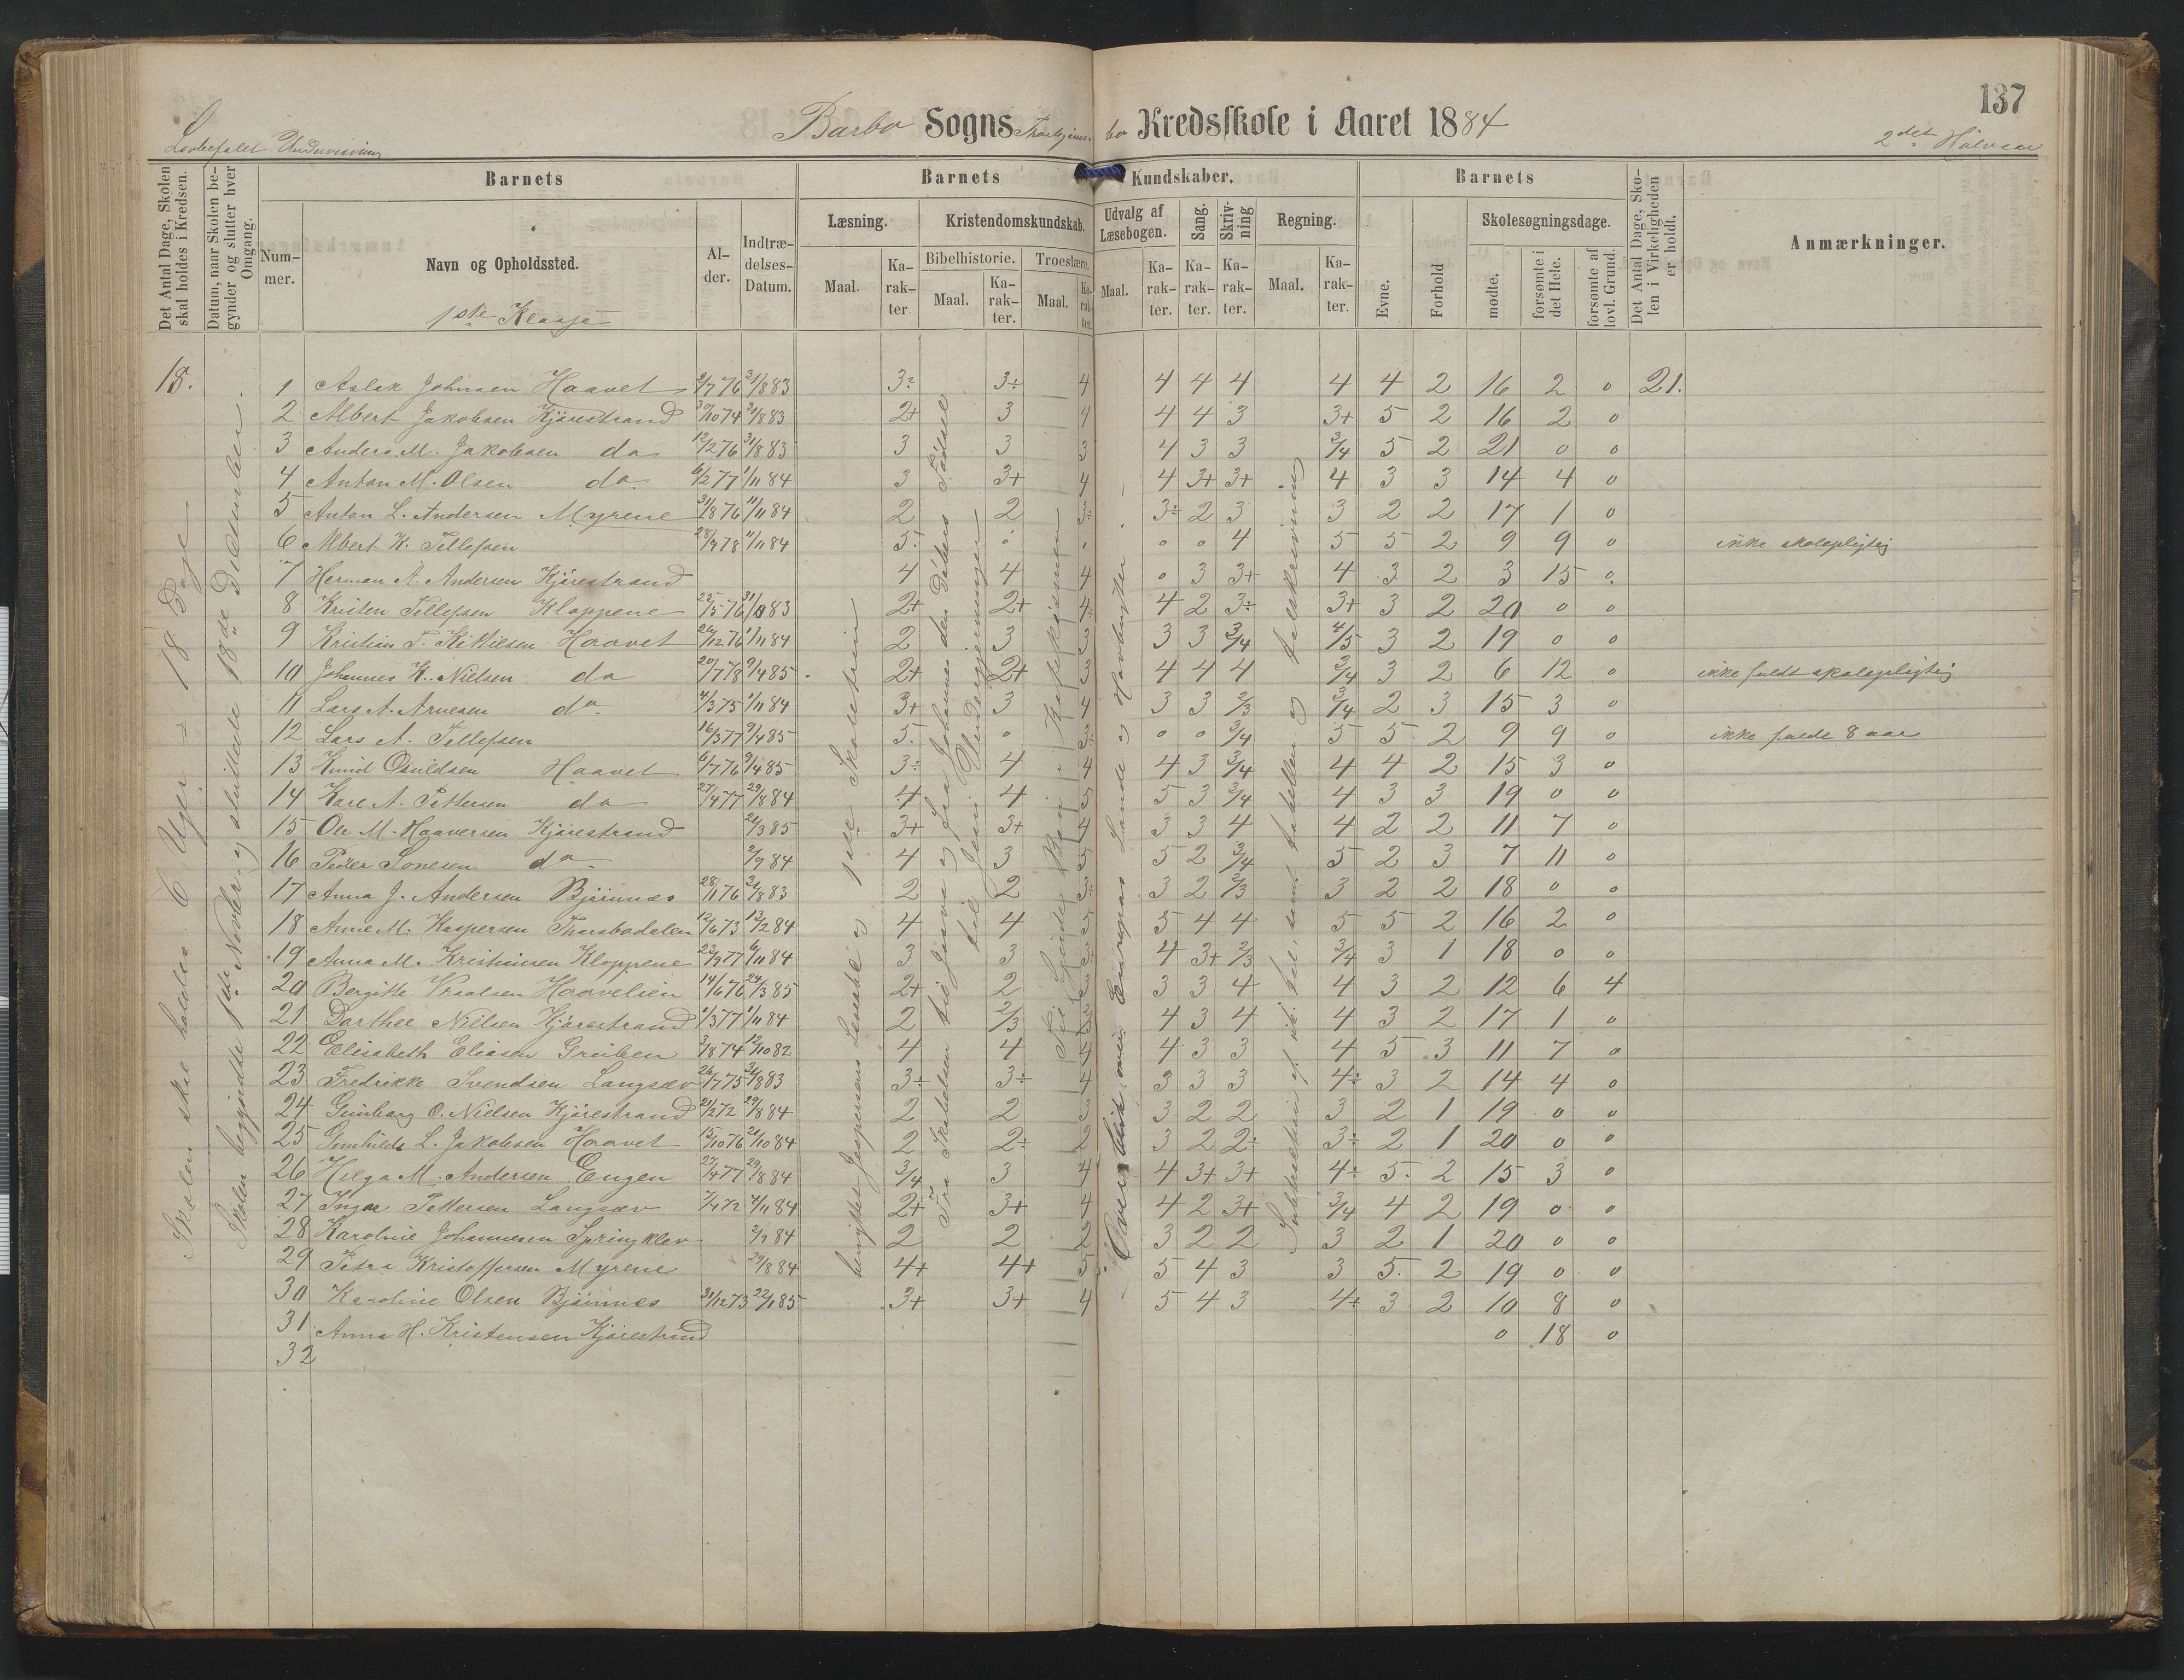 137
Barbo Sogns Kredsskole i Aaret 1884
Lovbefalet Undervisning
2det Halvaar
Det Antal Dage, Skolen skal holdes i Kredsen.
Datum, naar Skolen begynder og slutter hver Omgang.
Barnets
Barnets
Kundskaber.
Barnets
Det Antal Dage, Skolen i Virkeligheden er holdt.
Anmærkninger.
Nummer.
Navn og Opholdssted.
Alder.
Indtrædelses-Datum.
Læsning.
Kristendomskundskab.
Udvalg af Læsebogen.
Sang.
Skrivning
Regning.
Evne.
Forhold
Skolesøgningsdage.
Bibelhistorie.
Troeslære.
mødte.
forsømte i det Hele.
forsømte af lovl. Grund.
Maal.
Karakter
Maal.
Karakter.
Maal.
Karakter.
Maal.
Karakter.
Karakter.
Karakter.
Maal.
Karakter.
1ste Klasse
18.
Skolen skal holdes 6 Uger = 18 Dage
Skolen begyndte 1ste Novbr. og sluttede 18de December.
1 Aslak Johnsen Haavet 2/7 76 31/8 83 3÷ 3÷ 4 4 4 4 4 4 2 16 2 0 21.
2 Albert Jakobsen Kjørestrand 30/10 74 31/8 83 2+ 3 4 4 4 3 3+ 5 2 16 2 0
3 Anders M. Jakobsen do 12/2 76 31/8 83 3 3 3 4 3 3 3/4 5 2 21 0 0
4 Anton M. Olsen do. 6/2 77 1/11 84 3 3+ 4 4 3+ 3+ 4 3 3 14 4 0
5 Anton L. Andersen Myrene 31/8 76 11/11 84 2 2 3÷ 3÷ 2 3 3 2 2 17 1 0
6 Albert K. Tellefsen 28/9 78 11/11 84 5÷ 0 0 0 4 5 5 2 9 9 0 ikke skolepligtig
7 Herman A. Andersen Kjørestrand 4 4 4 0 3 3+ 4 3 2 3 15 0
8 Kristen Tellefsen Kloppene 25/5 76 31/8 83 2+ 2+ 4 4 2 3÷ 3+ 3 2 20 0 0
9 Kristian T. Kittilsen Haavet 26/12 76 1/11 84 2 3 3 3 3 3/4 4/5 3 2 19 0 0
10 Johannes K. Nilsen do 20/7 78 9/4 85 2+ 2+ 3 4 4 4 3/4 3 2 6 12 0 ikke fuldt skolepligtig
11 Lars A. Arnesen do. 4/3 75 1/11 84 3+ 3 4 3 3 2/3 3/4 2 3 15 3 0
12 Lars A. Tellefsen 16/3 77 9/4 85 5 0 3÷ 0 0 3/4 5 5 2 9 9 0 ikke fuldt 8 aar
13 Knud Osuldsen Haavet 6/7 76 9/4 85 3÷ 4 4 4 3 3/4 4 4 2 15 3 0
14 Karl A. Pettersen do 27/4 77 29/8 84 4 4 5 5 3 3/4 4 3 3 19 0 0
15 Ole M. Haaversen Kjørestrand 28/3 85 3+ 3+ 4 3 3 4 4 2 2 11 7 0
16 Peder Sonesen do 2/9 84 4 3 5 5 2 3/4 5 2 3 7 11 0
17 Anna J. Andersen Bjørnnes 28/1 76 31/8 83 2 2 3÷ 3 2 2/3 3 2 2 18 0 0
18 Anne M. Kaspersen Thorsbodalen 12/6 73 13/2 84 4 4 5 5 4 4 5 5 2 16 2 0
19 Anna M. Kristiansen Kloppene 23/9 77 6/11 84 3 3 3 4 3+ 2/3 3/4 3 1 18 0 0
20 Bergitte Vraalsen Haavelien 14/6 76 24/3 85 2+ 2 3 3 3 4 4 3 2 12 6 4
21 Dorthee Nilsen Kjørestrand 1/3 77 1/11 84 2 2/3 3 4 3 4 4 3 2 17 1 0
22 Elisabeth Eliasen Greiben 3/8 74 12/10 82 4 4 4 4 3 3 4 5 3 11 7 0
23 Fredrikke Svendsen Langsæv 26/7 75 31/8 83 3÷ 3÷ 4 3 3 3 4÷ 3 2 14 4 0
24 Gunborg O. Nielsen Kjørestrand 21/2 72 29/8 84 2 2 2 3 2 2 3 2 1 19 0 0
25 Gunhilde L. Jakobsen Haavet 15/10 76 21/10 84 2 2÷ 2 3 2 2÷ 3÷ 2 1 20 0 0
26 Helga M. Andersen Engen 27/4 77 29/8 84 3/4 3 4 4 3+ 3+ 4÷ 5 2 15 3 0
27 Inger Pettersen Langsæv 7/4 72 4/11 84 2+ 3+ 4 4 2 3+ 3/4 4 2 19 0 0
28 Karoline Johannesen Springklev 2/9 84 2 2 2 3 2 2 3 2 1 20 0 0
29 Petra Kristoffersen Myrene 29/8 84 4+ 4+ 5 5 4 3 3 5 2 19 0 0
30 Karoline Olsen Bjørnnes 31/12 73 22/1 85 3+ 3+ 4 5 4 3 4÷ 3 2 10 8 0
31 Anna H. Kristensen Kjørestrand 0 18 0
32
benyttet Jespersens Læsebog og 1ste Skoletrin
Fra Skabelsen til Josva og fra Johannes den Døbers Fødsel
til Jesu Undergjerninger